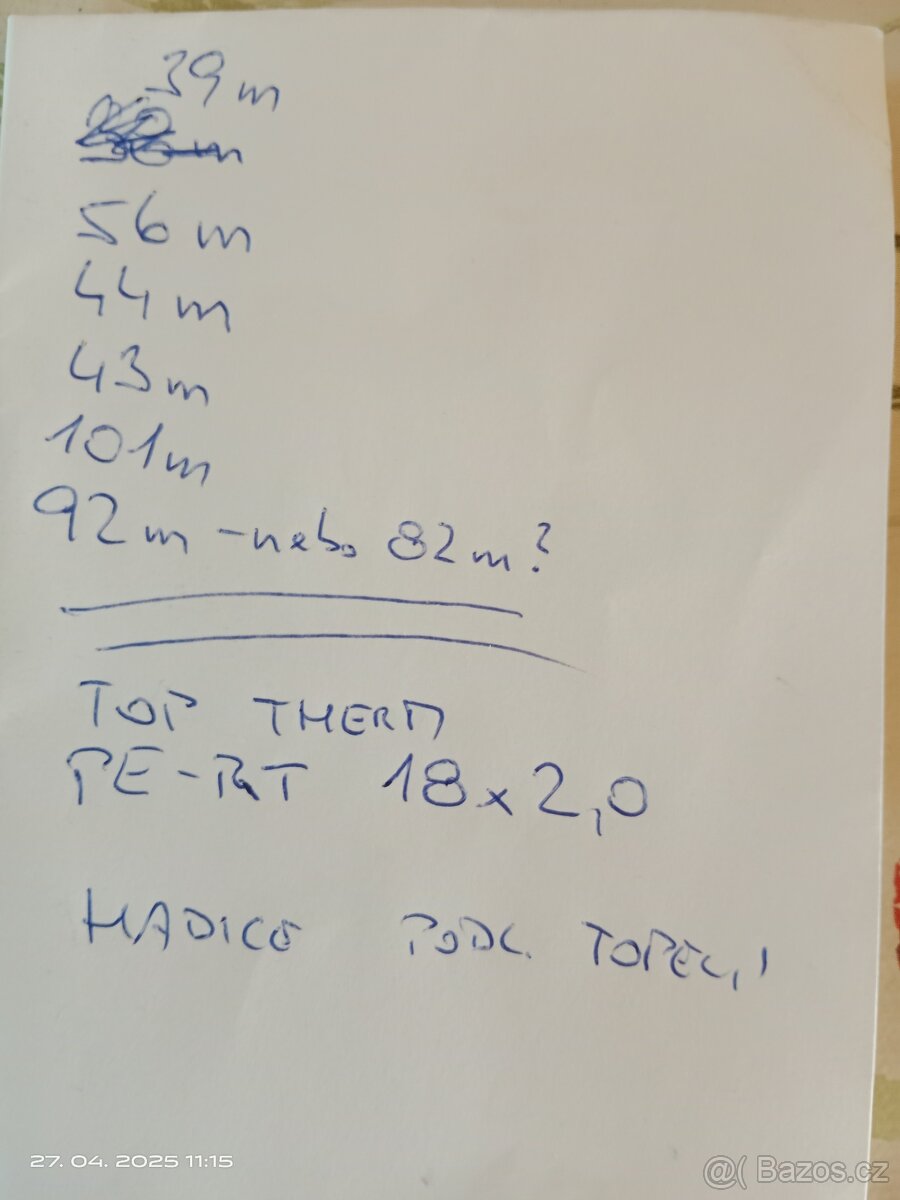 39 m
56 m
44 m
43 m
101 m
92 m - nebo 82 m?
TOP THERM
PE-RT 18 x 2,0
HADICE PODL. TOPENÍ
27. 04. 2025 11:15
@( Bazos.cz